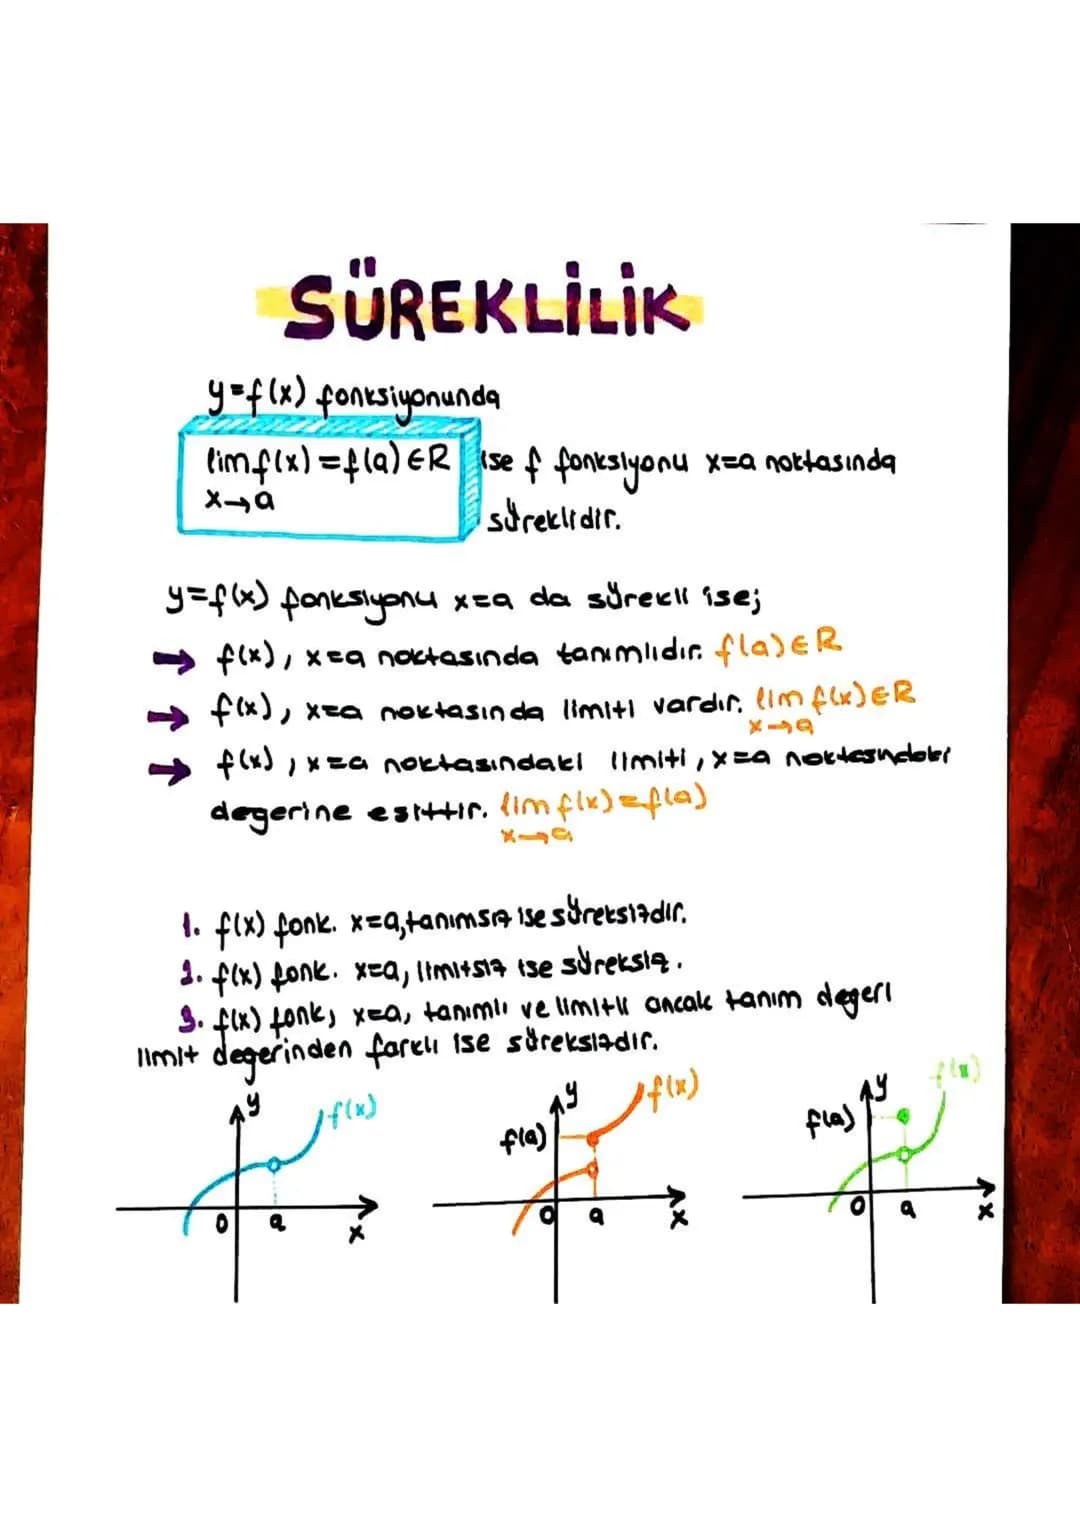 SÜREKLİLİK
y=f(x) fonksiyonunda
lim f(x) = f(a) ∈ R ise f fonksiyonu x=a noktasında
x→a
süreklidir.
y=f(x) fonksiyonu x=a da sürekli ise;
→ f(x), x=a noktasında tanımlıdır. f(a)∈R
→ f(x), x=a noktasında limiti vardır. lim f(x)∈R
x→a
→ f(x), x=a noktasındaki limiti, x=a noktasındaki
degerine esittir. lim f(x)=f(a)
x→a
1. f(x) fonk. x=a, tanımsız ise süreksizdir.
2. f(x) fonk. x=a, limitsiz ise süreksiz.
3. f(x) fonk, x=a, tanımlı ve limitli ancak tanım degeri
limit degerinden farklı ise süreksizdir.
y f(x)
0 a x
f(a) y f(x)
0 a x
f(a) y f(x)
0 a x